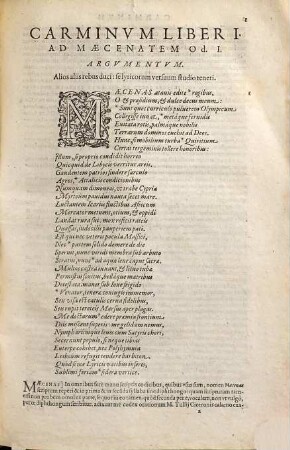 CARMINVM LIBER I.
AD MÆCENATEM Od. I.
ARGVMENTVM.
Alios aliis rebus duci: se lyricorum versuum studio teneri.
MÆCENAS atauis edite regibus,
O & præsidium, & dulce decus meum:
Sunt quos curriculo puluerem Olympicum
Collegisse iuuat, metáque feruidis
Euitata rotis, palmáque nobilis
Terrarum dominos euehit ad Deos.
Hunc, si mobilium turba Quiritium
Certat tergeminis tollere honoribus:
Illum, si proprio condidit horreo
Quicquid de Libycis verritur areis.
Gaudentem patrios findere sarculo
Agros, Attalicis conditionibus
Nunquam dimoueas, vt trabe Cypria
Myrtoum pauidus nauta secet mare.
Luctantem Icariis fluctibus Africum
Mercator metuens, otium, & oppidi
Laudat rura sui: mox reficit rates
Quassas, indocilis pauperiem pati.
Est qui nec veteris pocula Massici,
Nec partem solido demere de die
Spernit, nunc viridi membra sub arbuto
Stratus, nunc ad aquæ lene caput sacræ.
Multos castra iuuant, & lituo tubæ
Permistus sonitus, bellàque matribus
Detestata. manet sub Ioue frigido
Venator, teneræ coniugis immemor,
Seu visa est catulis cerua fidelibus,
Seu rupit teretes Marsus aper plagas.
Me doctarum ederæ præmia frontium
Diis miscent superis: me gelidum nemus,
Nympharúmque leues cum Satyris chori,
Secernunt populo, si neque tibias
Euterpe cohibet, nec Polyhymnia
Lesboum refugit tendere barbiton.
Quòd si me Lyricis vatibus inseres,
Sublimi feriam sidera vertice.